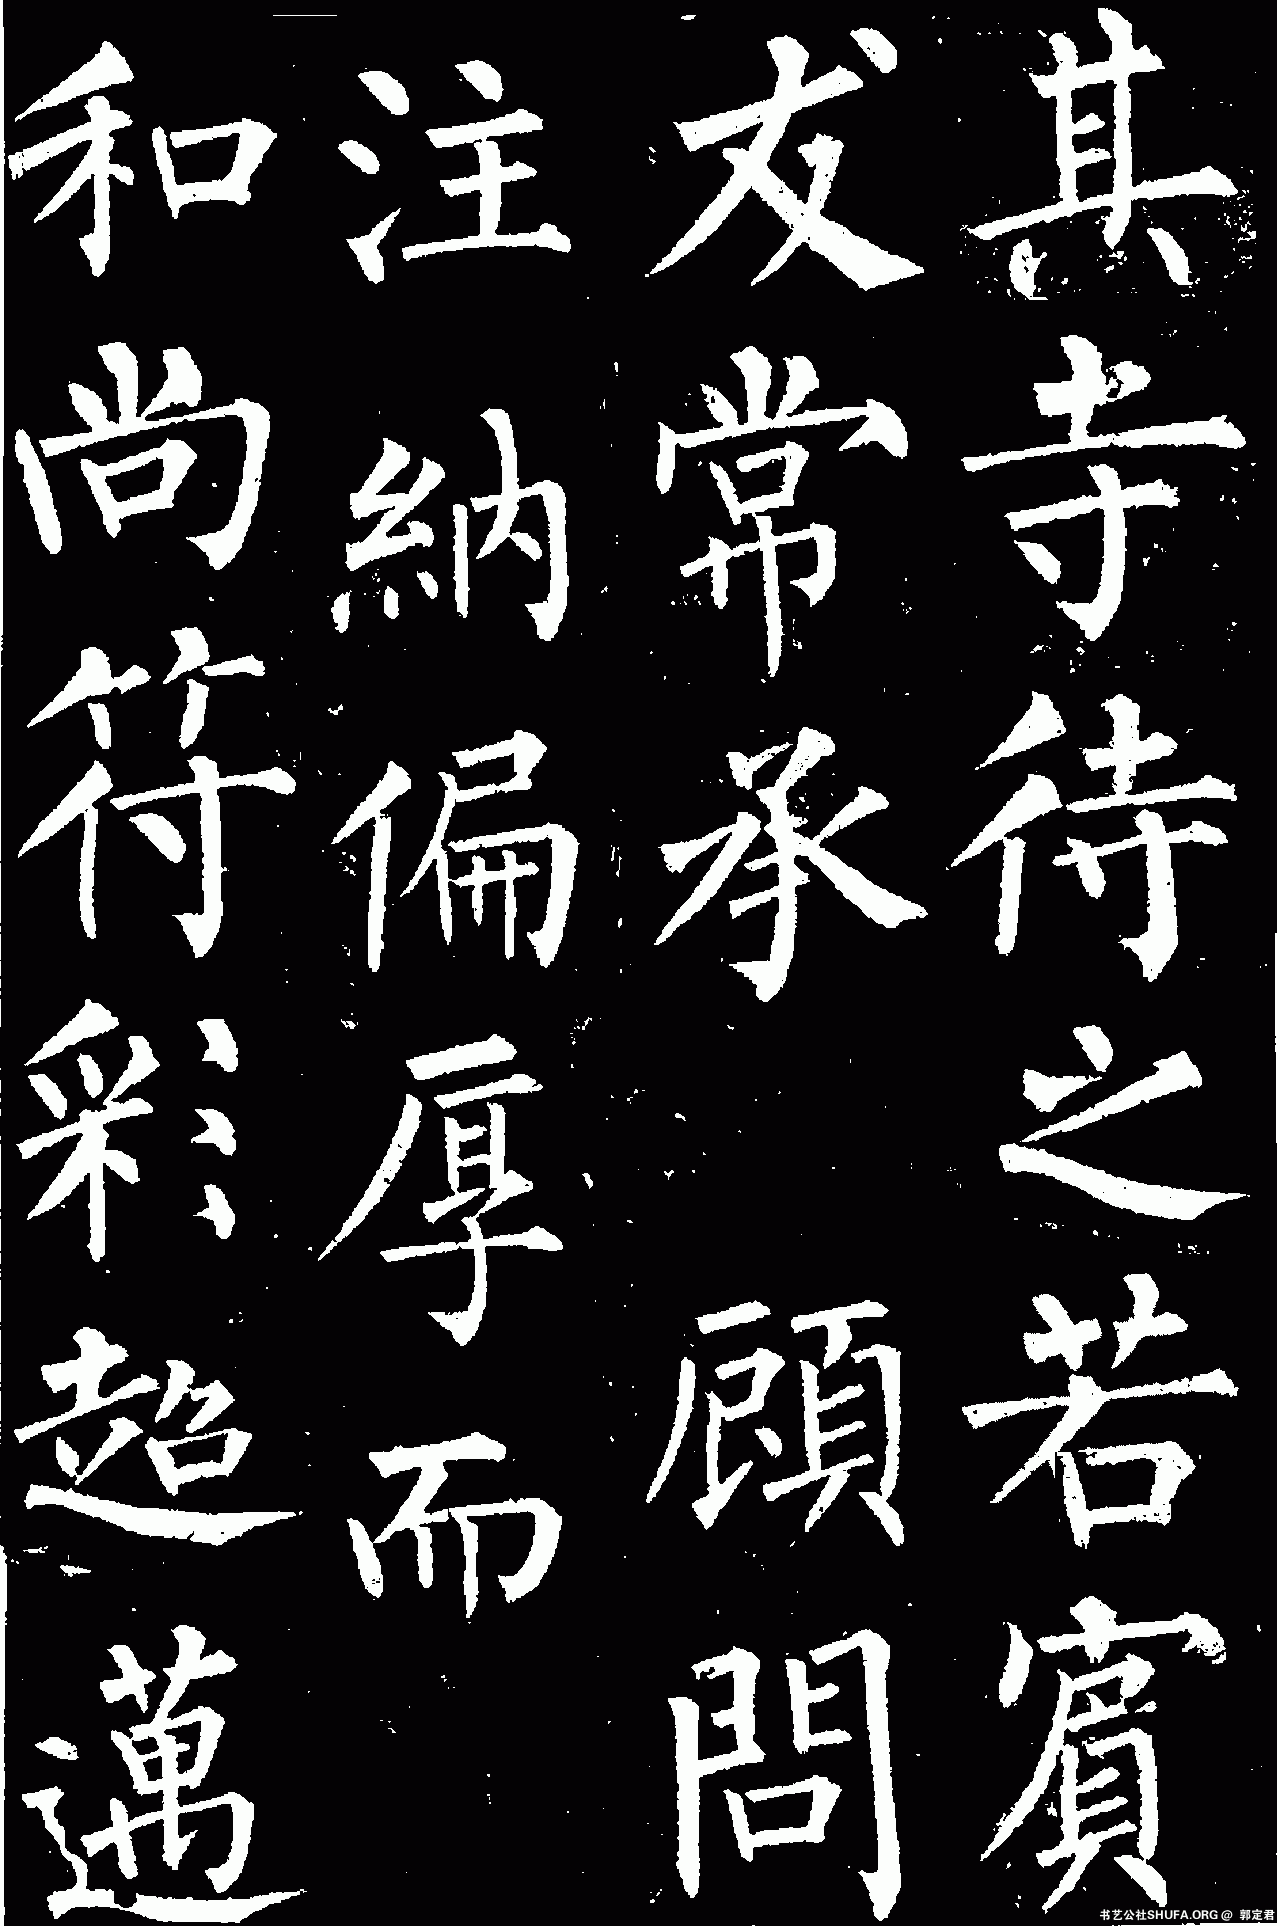 其寺待之若賓
友常承 顧問
注納偏厚而
和尚符彩超邁
书艺公社SHUFA.ORG @ 郭定君